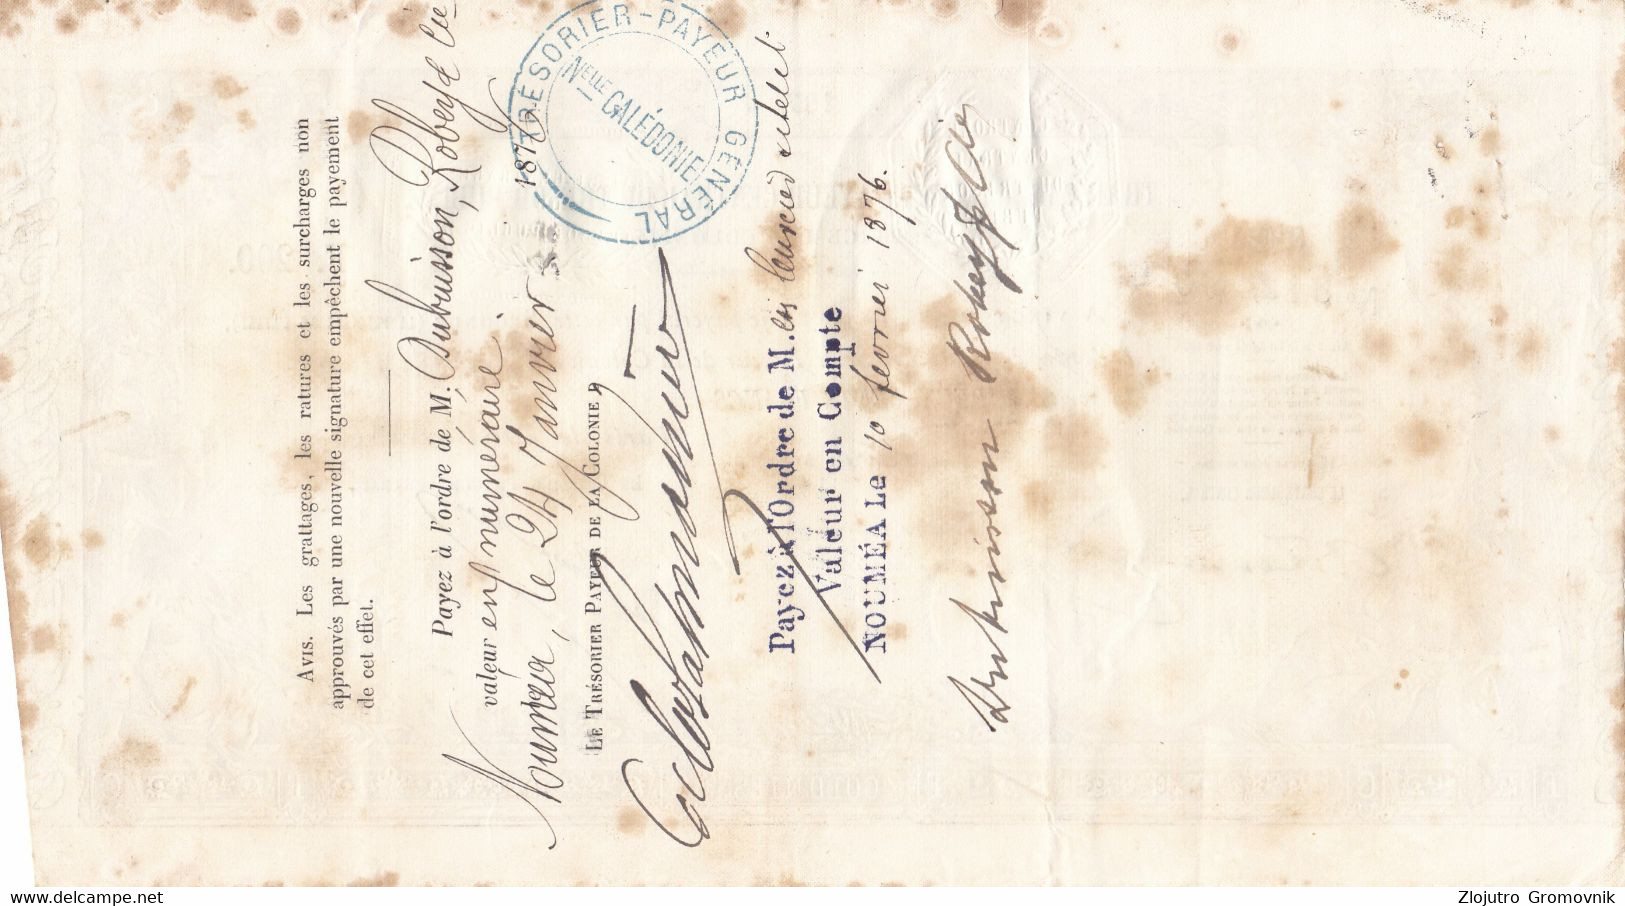 Avis. Les grattages, les ratures et les surcharges non
approuvés par une nouvelle signature empêchent le payement
de cet effet.
Payez à l'ordre de M. Dubuisson, Robey & Cie
valeur en numéraire.
Nouméa, le 24 Janvier 1876
Le Trésorier Payeur de la Colonie,
TRÉSORIER-PAYEUR GÉNÉRAL
Nelle CALÉDONIE
Payez à l'Ordre de M.
Valeur en Compte
NOUMÉA Le 10 fevrier 1876.
Dubuisson Robey & Cie
Zlojutro Gromovnik